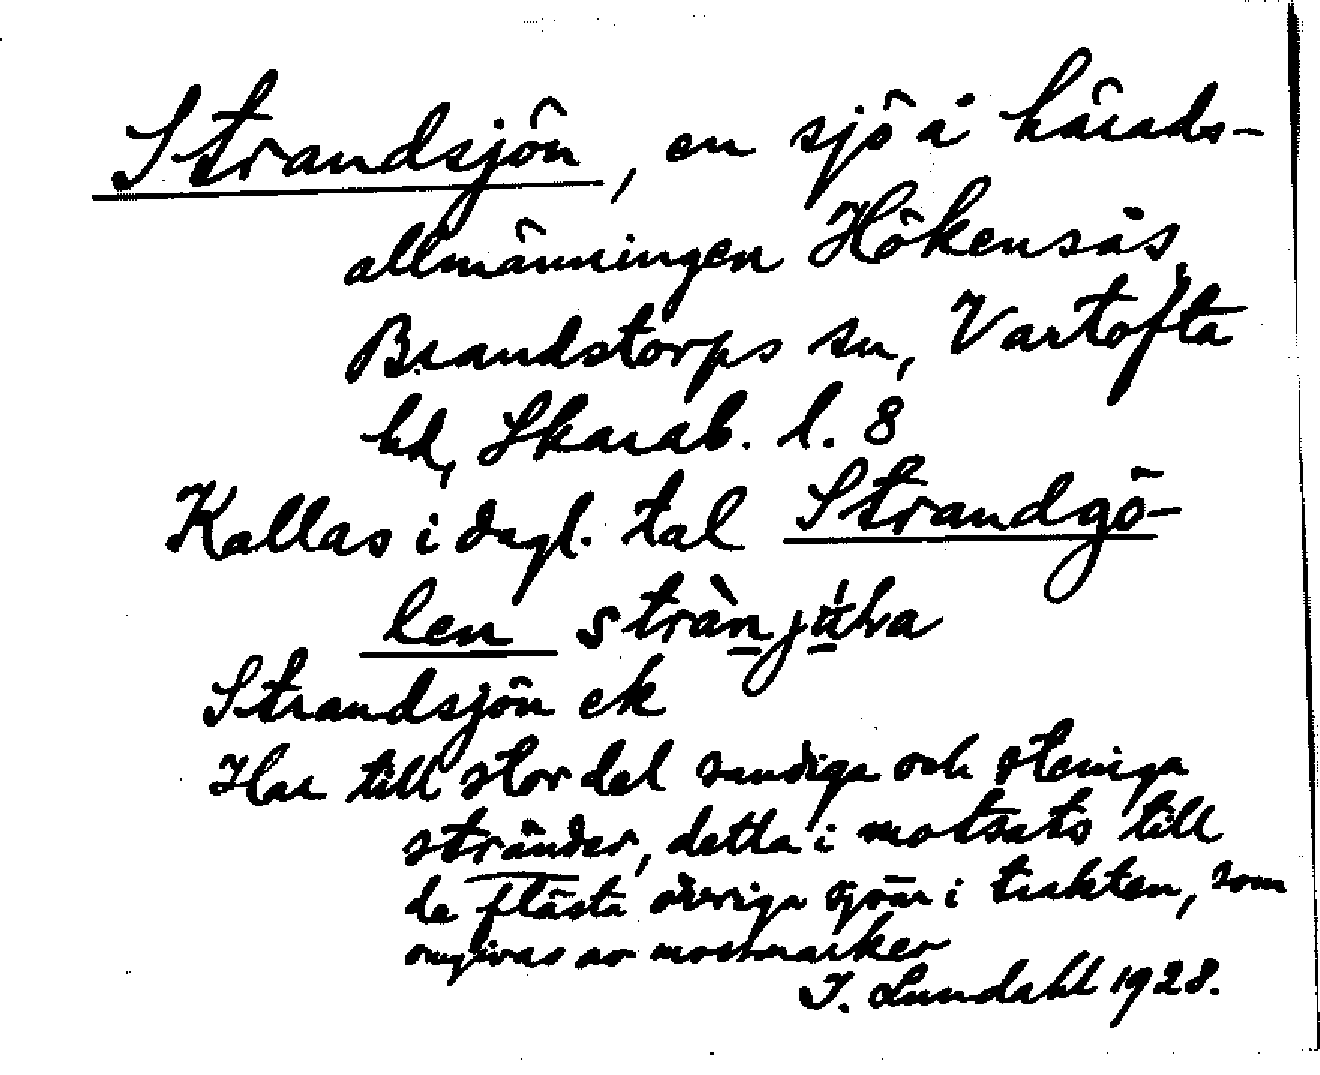 Strandsjön, en sjö å härads-
allmänningen Hökensås,
Brandstorps sn, Vartofta
hd, Skarab. l. 8
Kallas i dagl. tal Strandgö-
len
Strandsjön ek
Har till stor del sandiga och steniga
stränder, detta i motsats till
de flästa övriga sjöar i trakten, som
omgivas av mossmarker
I. Lundahl 1928.